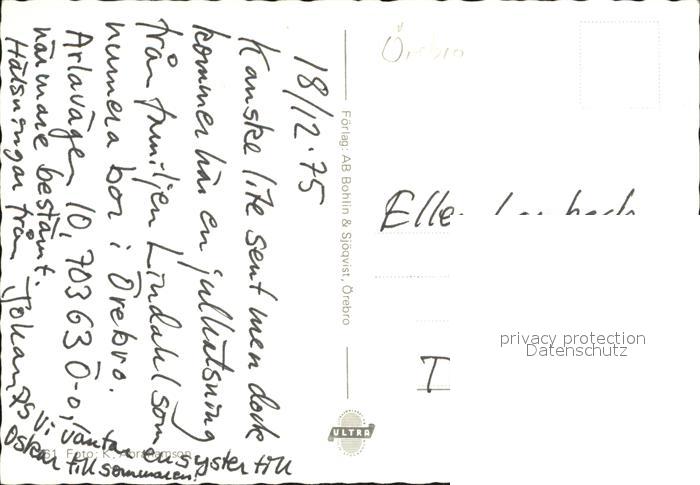 18/12.75
Kanske lite sent men dock
kommer här en julhälsning
från familjen Lindahl som
numera bor i Örebro.
Arlavägen 10, 703 63 Ö-o,
närmare bestämt.
Hälsningar från Johan
PS Vi väntar en syster till
Oskar till sommaren!
61 Foto: K. Abrahamson
Förlag: AB Bohlin & Sjöqvist, Örebro
ULTRA
Örebro
privacy protection
Datenschutz